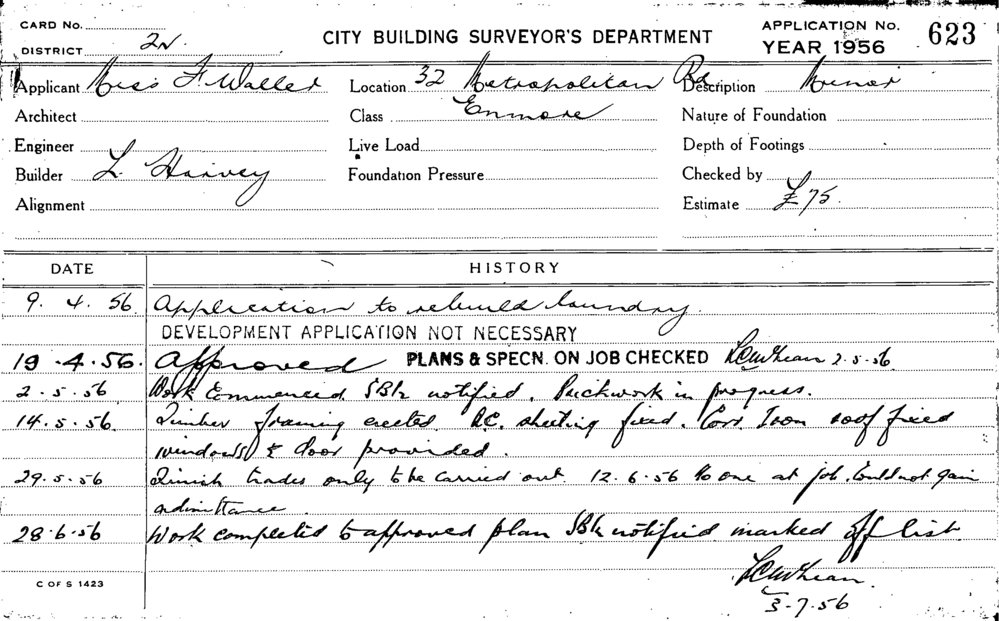 CARD No.
DISTRICT 2N.
CITY BUILDING SURVEYOR'S DEPARTMENT
APPLICATION No. 623
YEAR 1956
Applicant Miss F. Waller Location 32 Metropolitan Rd Description Minor
Architect Class Enmore Nature of Foundation
Engineer Live Load Depth of Footings
Builder L. Harvey Foundation Pressure Checked by
Alignment Estimate £75.
DATE HISTORY
9. 4. 56 Application to rebuild laundry.
DEVELOPMENT APPLICATION NOT NECESSARY
19.4.56. Approved PLANS & SPECN. ON JOB CHECKED 2.5.56
2.5.56 Work Commenced notified. Brickwork in progress.
14.5.56. Timber framing erected. A.C. sheeting fixed. Corr. Iron roof fixed
windows & door provided.
29.5.56 Finish trades only to be carried out. 12.6.56 No one at job. Could not gain
admittance.
28.6.56 Work completed to approved plan notified marked off list.
3-7-56
C OF S 1423